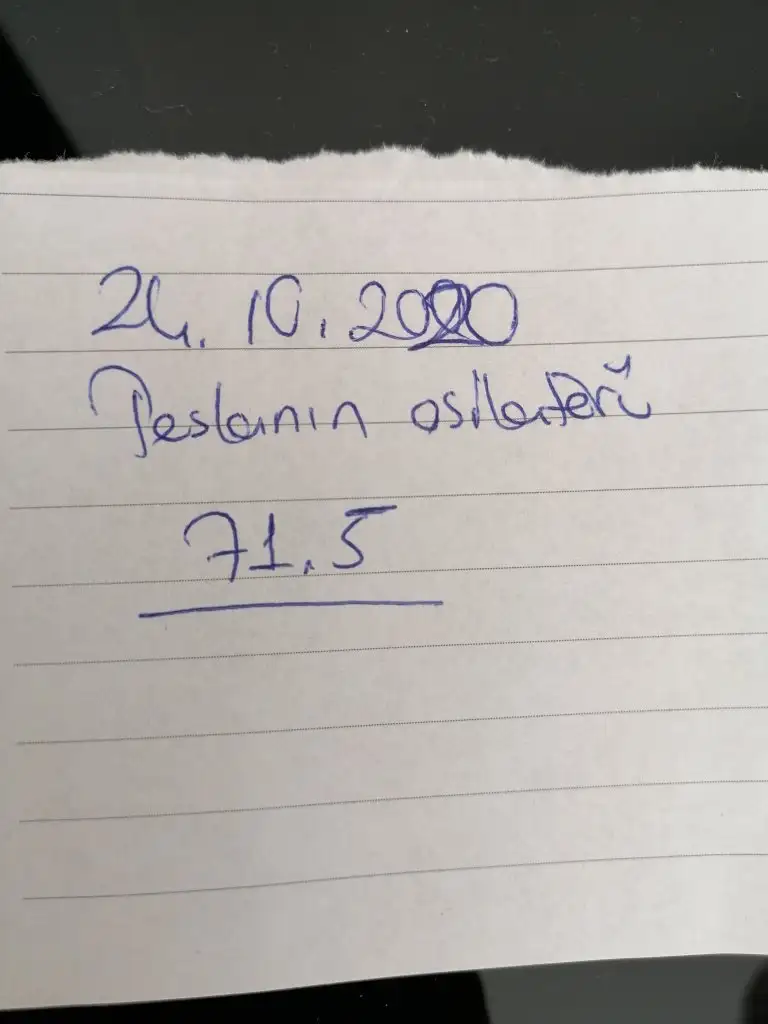 24.10.2020
Teslanın osilatörü
71.5